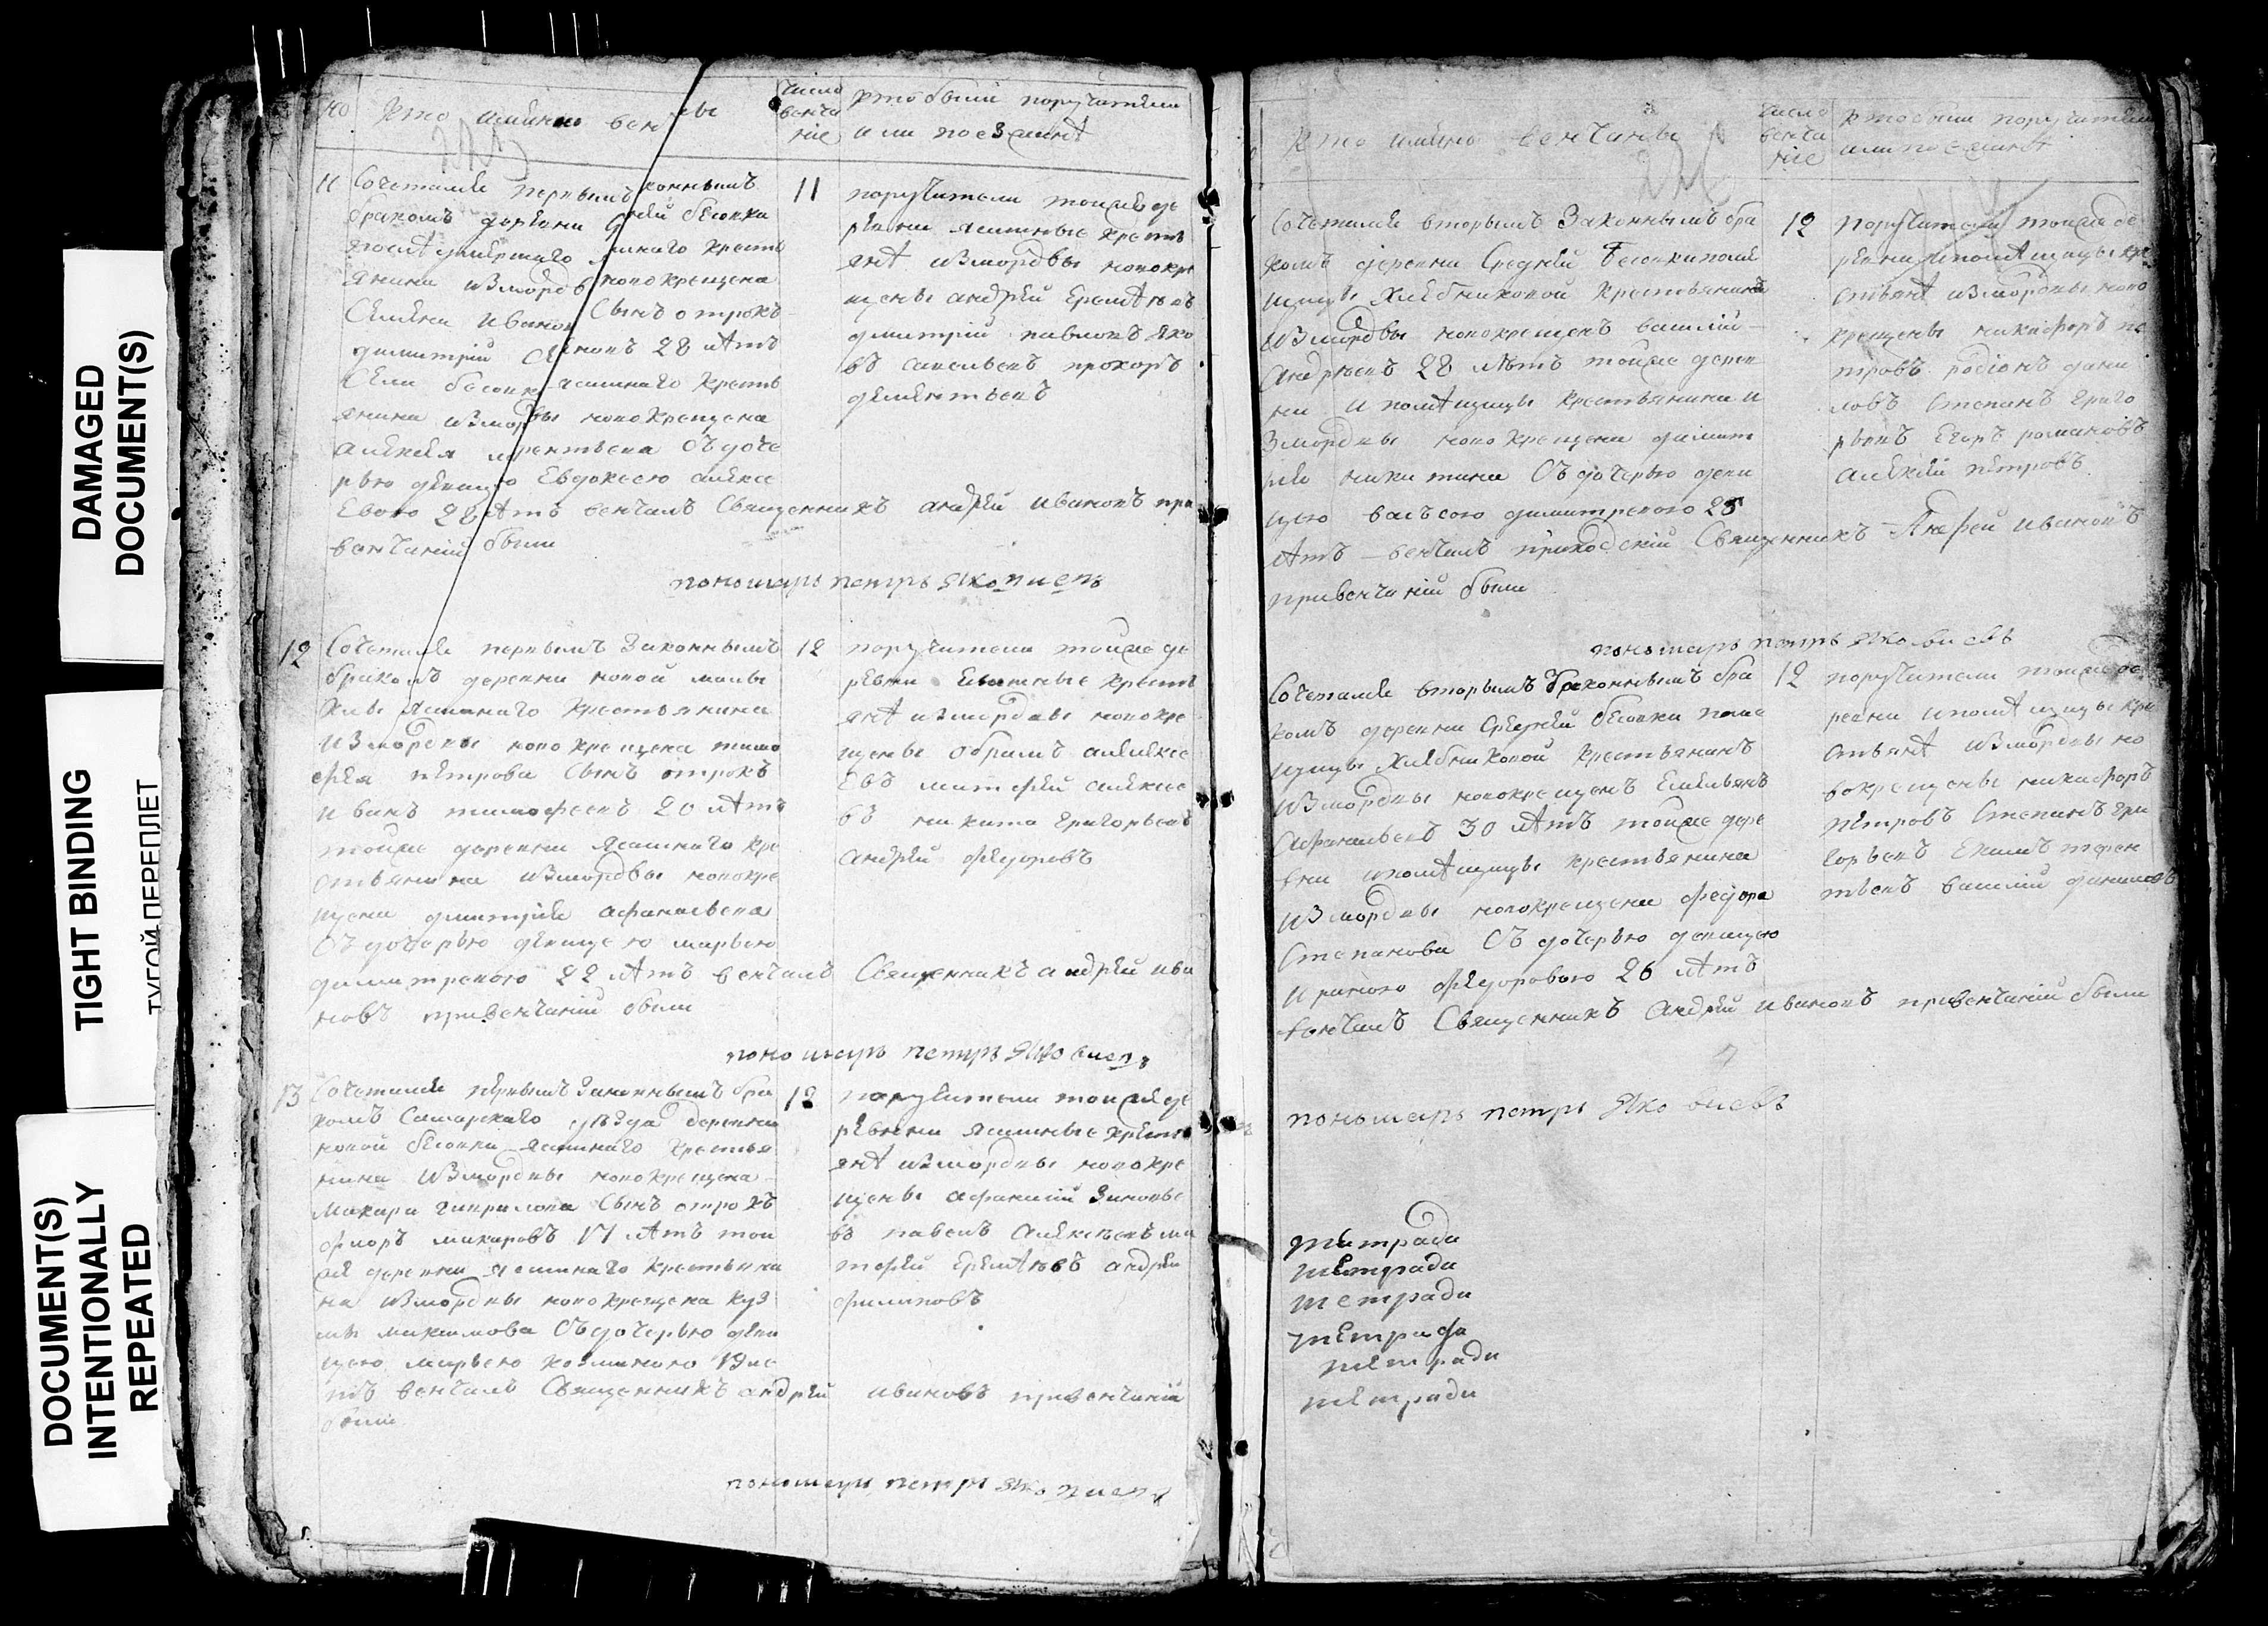 DAMAGED
DOCUMENT(S)
TIGHT BINDING
ТУГОЙ ПЕРЕПЛЕТ
DOCUMENT(S)
INTENTIONALLY
REPEATED
кто имянно вен ны
число
венча
ніе
кто были поручители
или поезжанѣ
11
Сочетался первымъ конным
бракомъ деревни
умершаго крестья
янина измордв новокрещена
Семена Иванов Сынъ отрокъ
димитрій 28 лѣтъ
крестья
янина измордвы новокрещена
съ доче
рью девицею Евдоксею алексе
Евою 28 лѣтъ венчалъ Священникъ андрей ивановъ при
венчаній были
11
поручители тойже де
ревни ясашные кресть
янѣ измордвы новокре
щены андрей Еремѣевъ
димитрій павловъ яко
въ савельевъ прохоръ
дементьевъ
пономарь петръ яковлевъ
12
Сочетался первымъ Законнымъ
бракомъ деревни новой
ясашнаго крестьянина
измордвы новокрещена тимо
фея петрова Сынъ отрокъ
иванъ тимофеевъ 20 лѣтъ
тойже деревни ясашнаго кре
стьянина измордвы новокре
щена димитрія афанасьева
Съ дочерью девицею марьею
димитревою 22 лѣтъ венчалъ Священникъ андрей ива
новъ привенчаній были
12
поручители тойже де
ревни ясашные кресть
янѣ измордвы новокре
щены абрамъ алексе
Евъ матфей алексее
въ никита григорьевъ
андрей федоровъ
пономарь петръ яковлевъ
13
Сочетался первымъ Законнымъ бра
комъ Самарскаго уезда деревни
новой бесовки ясашнаго крестья
нина измордвы новокрещена
макара гаврилова Сынъ отрокъ
флоръ макаровъ 17 лѣтъ той
же деревни ясашнаго крестьяни
на измордвы новокрещена куз
мы максимова Съ дочерью деви
цею марьею козминою 19 ле
тъ венчалъ Священникъ андрей ивановъ привенчаній
были
12
поручители тойже де
ревни ясашные кресть
янѣ измордвы новокре
щены афанасій Зиновье
въ павелъ алексеевъ ма
тфей Еремѣевъ андрей
филиповъ
пономарь петръ яковлевъ
кто имяно венчаны
число
венча
ніе
кто были поручители
или поезжанѣ
Сочетался вторымъ Законнымъ бра
комъ деревни Средней бесовки поме
щицы Хлебниковой крестьянинъ
измордвы новокрещенъ василій
андреевъ 28 лѣтъ тойже дерев
ни и помѣщицы крестьянина и
змордвы новокрещена димит
рея никитина Съ дочерью деви
цею васъсою димитревою 25
лѣтъ венчалъ приходскій Священникъ Андрей ивановъ
привенчаній были
12
Поручители тойже де
ревни и помѣщицы кре
стьянѣ измордвы ново
крещены никифоръ пе
тровъ родіонъ дани
ловъ Степанъ григо
рьевъ Егоръ романовъ
алексей петровъ
пономарь петръ яковлевъ
Сочетался вторымъ Законнымъ бра
комъ деревни Средней бесовки поме
щицы Хлебниковой крестьянинъ
измордвы новокрещенъ Емельянъ
афанасьевъ 30 лѣтъ тойже дере
вни и помѣщицы крестьянина
измордвы новокрещена федора
Степанова Съ дочерью девицею
ириною федоровою 26 лѣтъ
венчалъ Священникъ андрей ивановъ привенчаній были
12
поручители тойже де
ревни и помѣщицы кре
стьянѣ измордвы но
вокрещены никифоръ
петровъ Степанъ гри
горьевъ Екимъ терен
тьевъ василій даниловъ
пономарь петръ яковлевъ
тетради
тетради
тетради
тетради
тетради
тетради